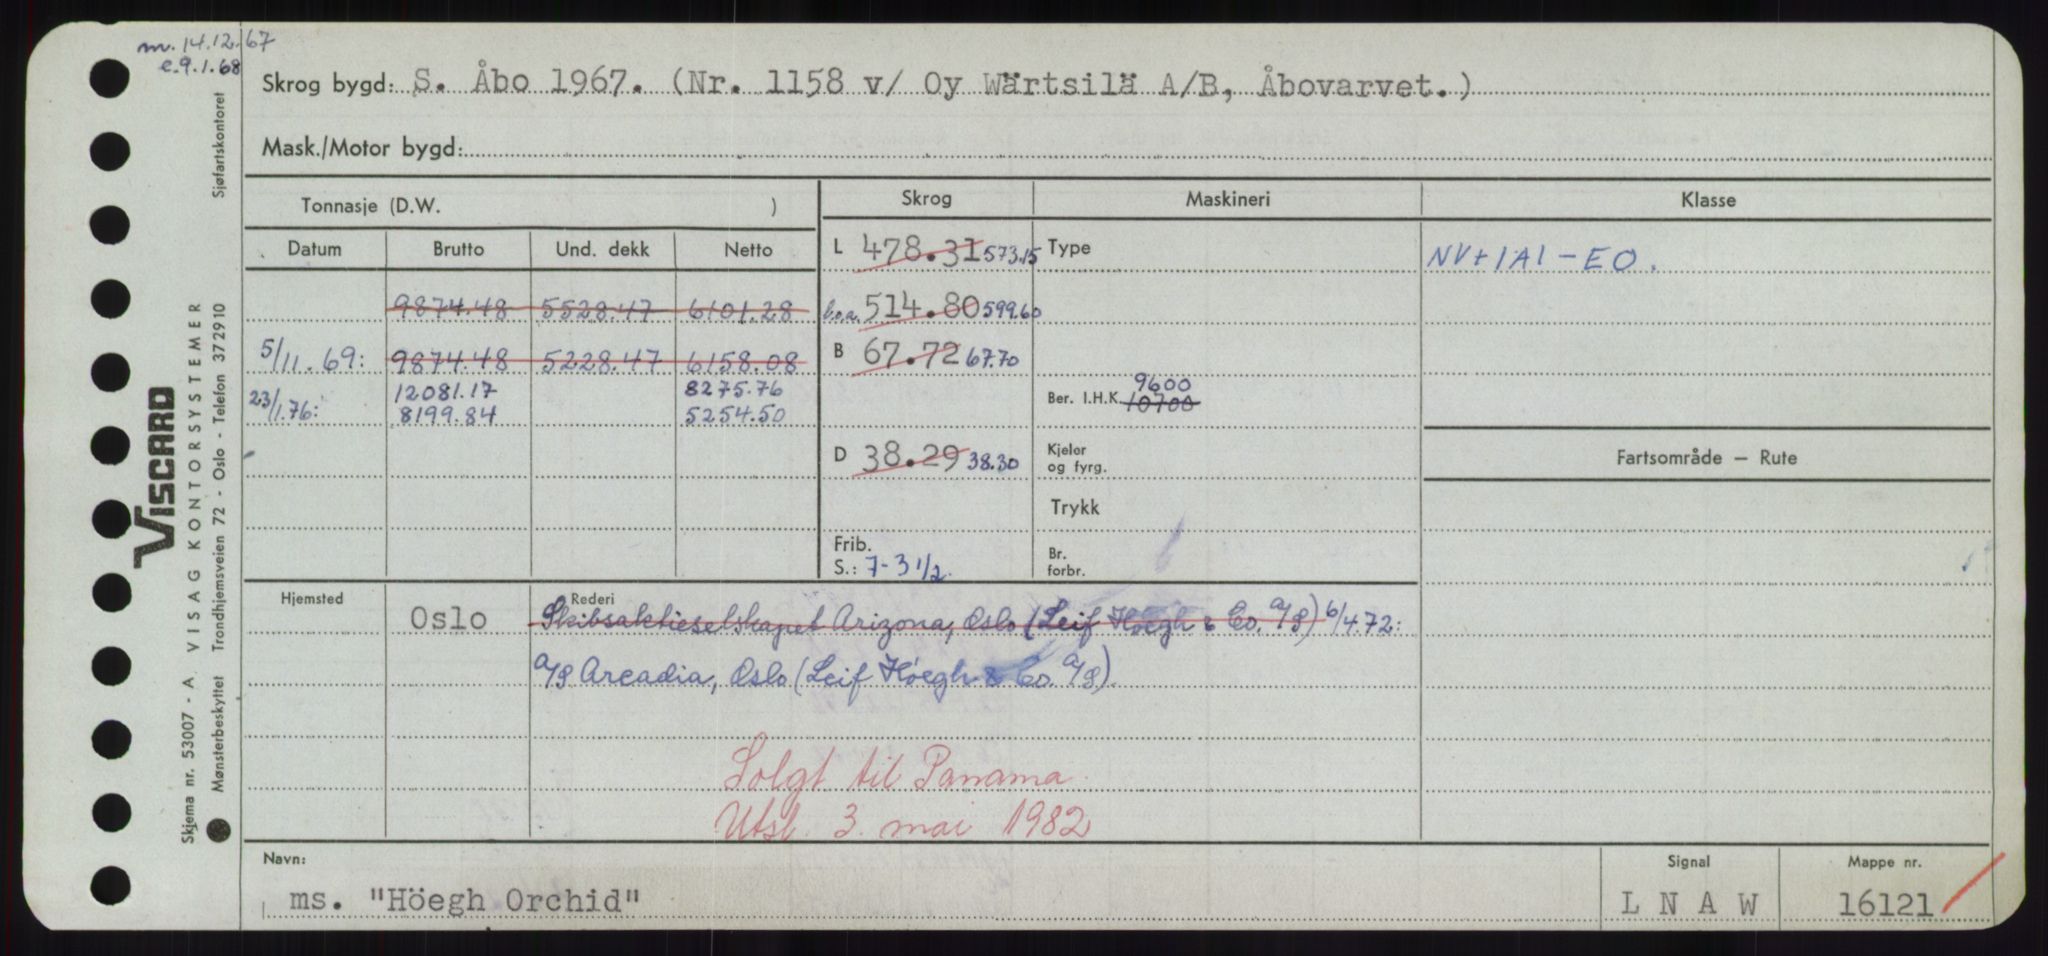 m. 14.12.67
c. 9.1.68
Skrog bygd: S. Åbo 1967. (Nr. 1158 v/ Oy Wärtsilä A/B, Åbovarvet.)
Mask./Motor bygd:
Tonnasje (D.W. )
Skrog
Maskineri
Klasse
Datum
Brutto
Und. dekk
Netto
L 478.31 573.15
Type
NV+1A1-EO.
9874.48 5528.47 6101.28
l.o.a. 514.80 599.60
5/11.69: 9874.48 5228.47 6158.08
B 67.72 67.70
23/1.76: 12081.17 8275.76
8199.84 5254.50
9600
Ber. I.H.K. 10700
D 38.29 38.30
Kjeler
og fyrg.
Fartsområde — Rute
Trykk
Frib.
S.: 7-3 1/2
Br.
forbr.
Hjemsted
Oslo
Rederi
Skibsaktieselskapet Arizona, Oslo (Leif Höegh & Co. A/S) 6/4.72:
A/S Arcadia, Oslo (Leif Höegh & Co. A/S).
Solgt til Panama.
Utsl. 3. mai 1982
Navn:
ms. "Höegh Orchid"
Signal
L N A W
Mappe nr.
16121
Skjema nr. 53007 - A VISAG KONTORSYSTEMER Sjøfartskontoret
VISCARD
Mønsterbeskyttet Trondhjemsveien 72 - Oslo - Telefon 372910